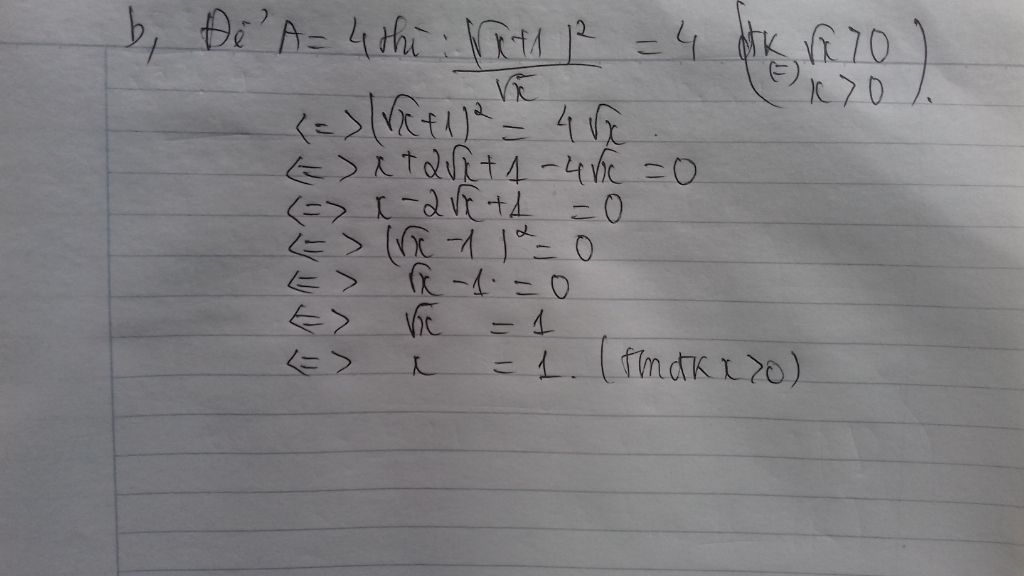 b, Để A = 4 thì : (√x+1)²/√x = 4 (đk √x>0 (=) x>0).
<=> (√x+1)² = 4√x.
<=> x+2√x+1-4√x = 0
<=> x-2√x+1 = 0
<=> (√x-1)² = 0
<=> √x-1 = 0
<=> √x = 1
<=> x = 1. (tmđk x>0)